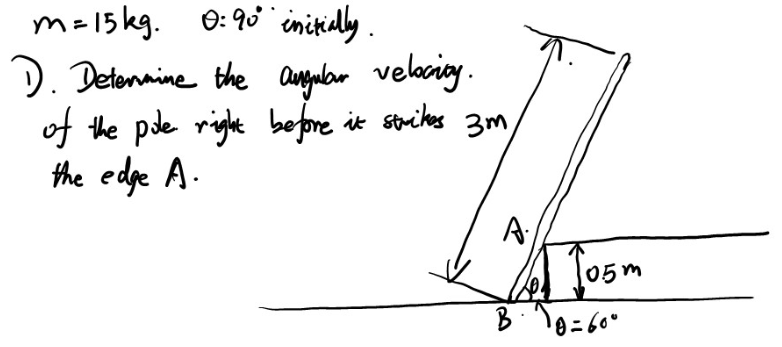 m = 15 kg. θ: 90° initially.
1). Determine the angular velocity.
of the pole right before it strikes
the edge A.
3m
A.
θ
0.5 m
B.
θ = 60°